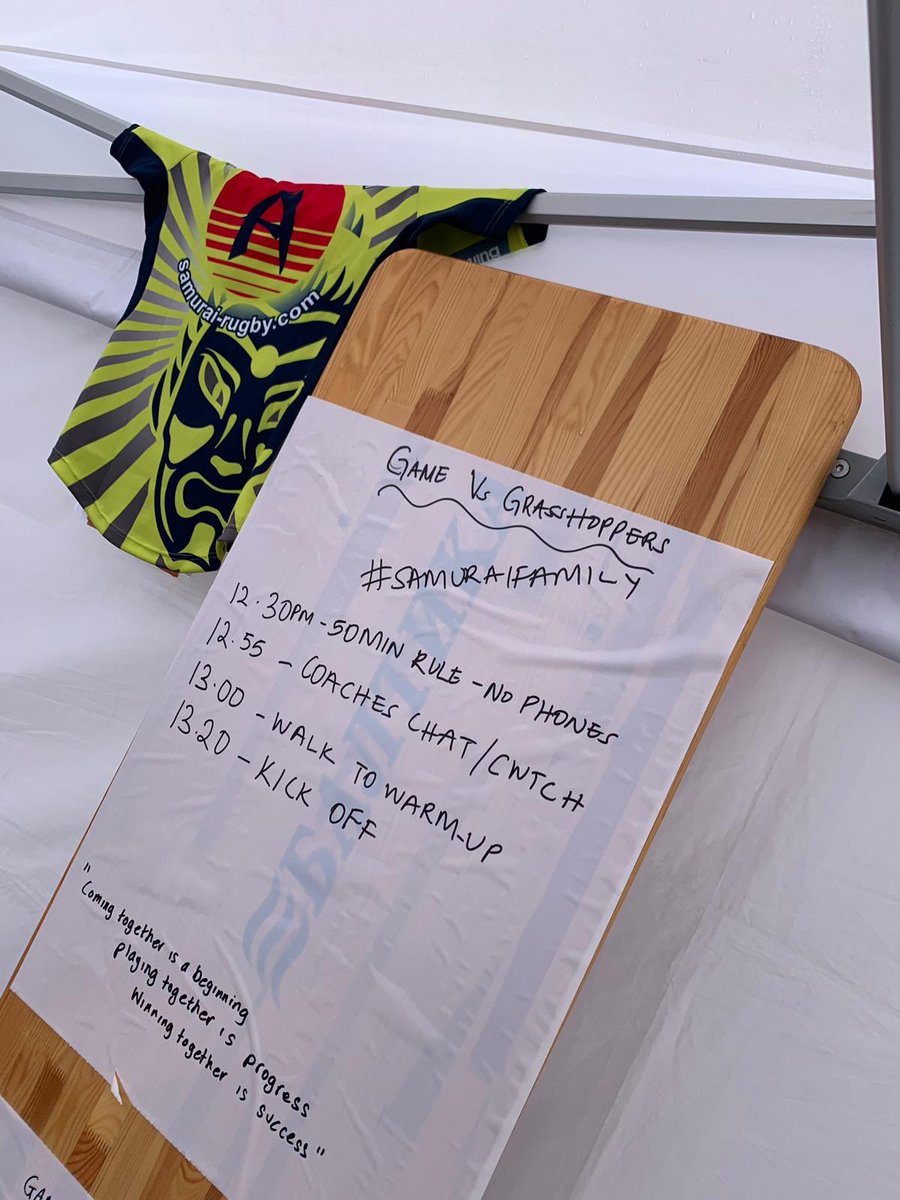 A
samurai-rugby.com
GAME VS GRASSHOPPERS
#SAMURAIFAMILY
12.30PM - 50MIN RULE - NO PHONES
12.55 - COACHES CHAT/CWTCH
13.00 - WALK TO WARM-UP
13.20 - KICK OFF
БАЛТИКА
"Coming together is a beginning
Playing together is progress
Winning together is success"